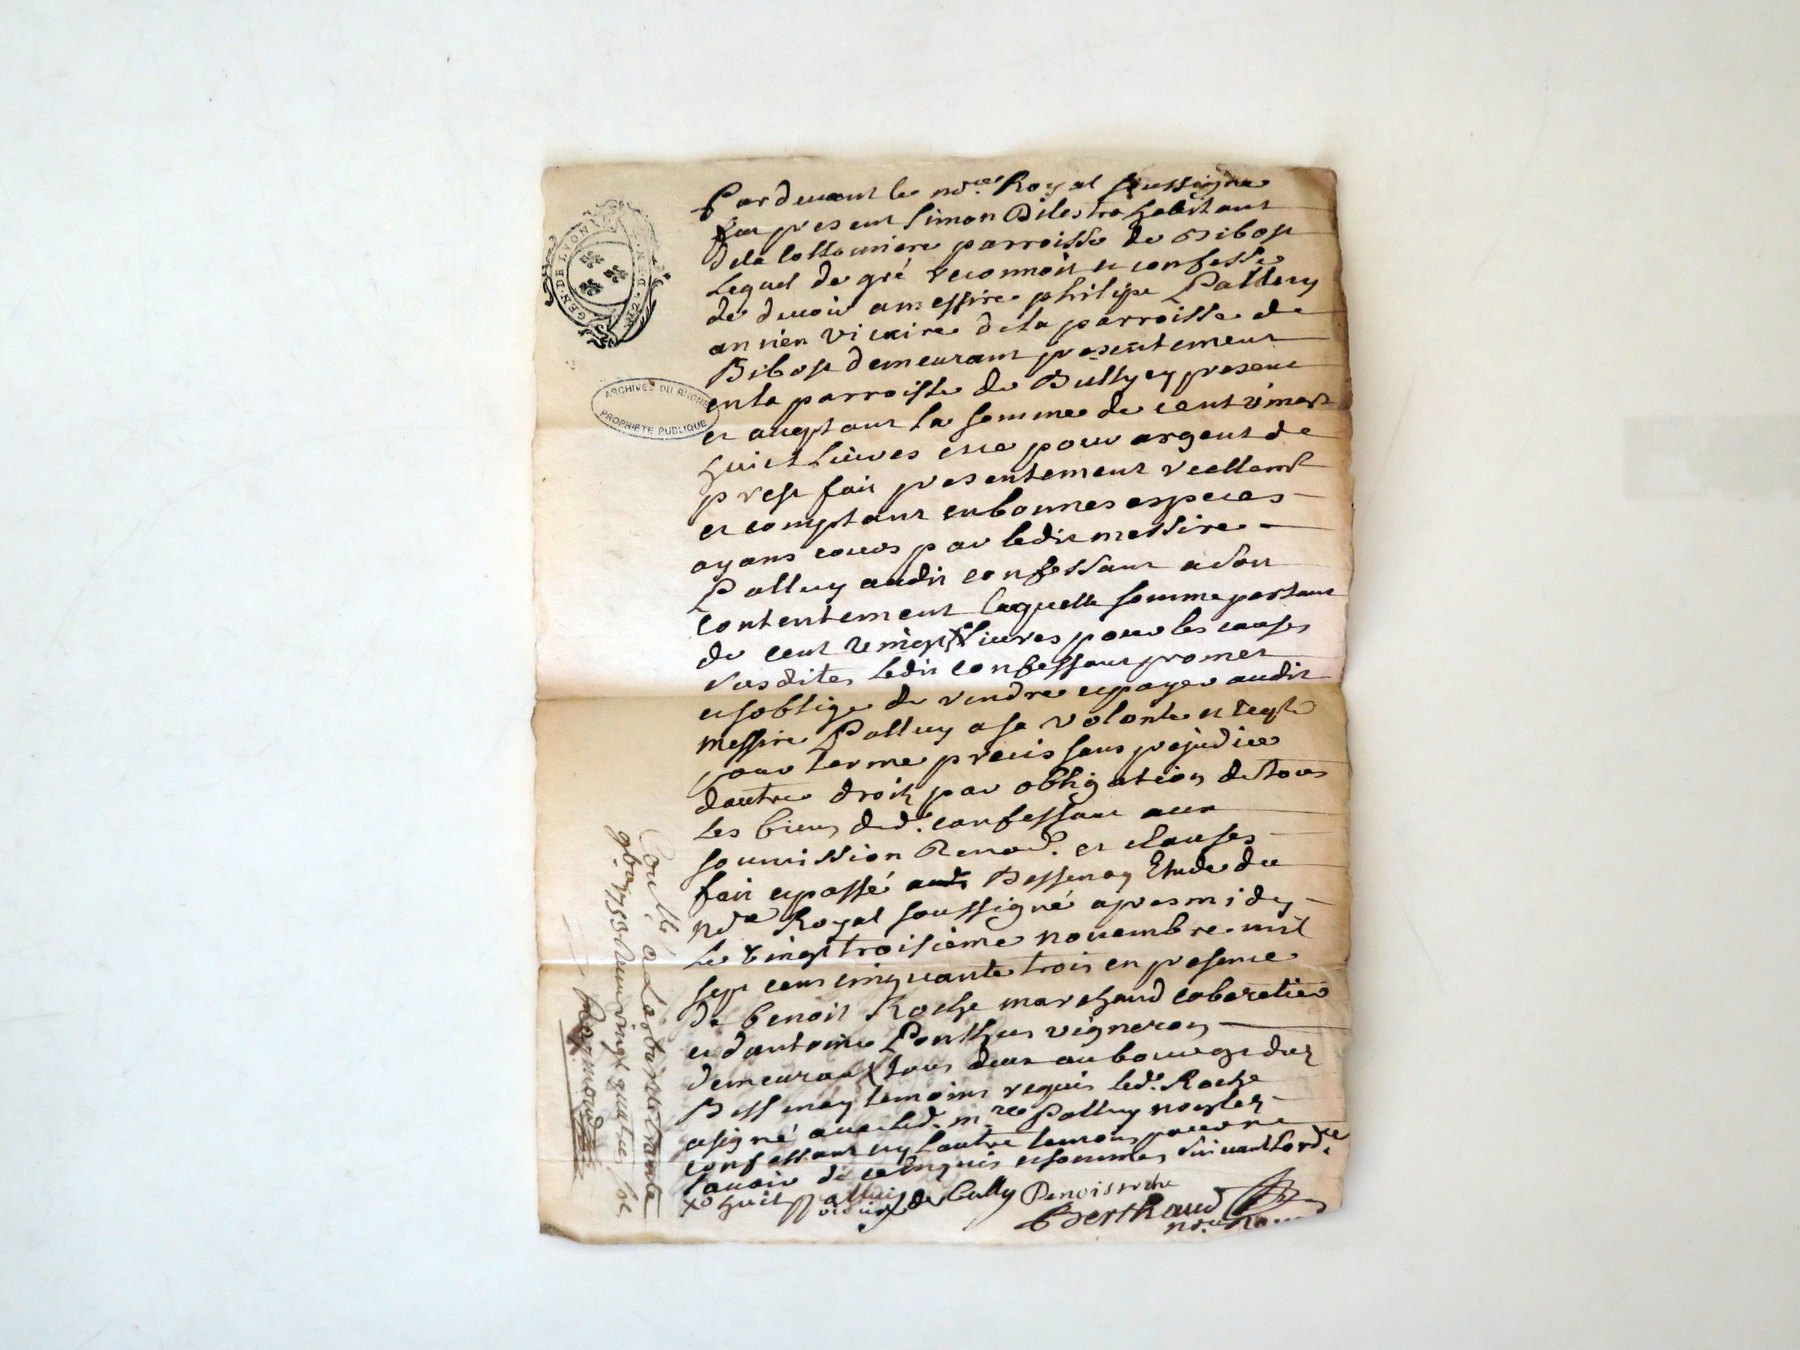 GEN. DE LYON
ARCHIVES DU RHONE
PROPRIETE PUBLIQUE
Pardeuant le no.re Royal soussigné
fut present Simon Dilestra habitant
dela parroisse de Bibost
Lequel de gré reconnoit et confesse
de deuoir a messire philipe Palluy
ansien vicaire dela parroisse de
Bibost demeurant presentement
en la parroisse de Bully cy present
et aceptant la somme de cent vingt
huict liures icelle pour argent de
prest fait presentement reellemt
et comptant en bonnes especes
ayans cours par ledit messire
Palluy audit confessant a son
contentement laquelle somme partant
de cent vingt x liures pour les causes
susdites ledit confessant promet
et soblige de rendre et payer audit
messire Palluy a sa volonte et
pour terme precis sans prejudice
dautre droit par obligation de tous
les biens dud. confessant aux
soumission Renod. et clauses
fait et passé Bessenay Etude du
no.re Royal soussigné apres midy
Le vingt troisieme nouembre mil
sept cens cinquante trois en presence
de benoit Roche marchand cabaretier
et dantoine Ponthus vigneron
demeurant tous deux au bourg dud
Bessenay temoins requis led. Roche
a signé auec led. m.re Palluy non led
confessant ny lautre temoin pour ne
sauoir de ce enquis et sommes suiuant lord.ce
xo huit Palluy de Bully Benoist roche
Berthaud
no.re Royal
Con.llé a Larbresle trante
9bre 1753 Receu vingt quatre sols
Raymond